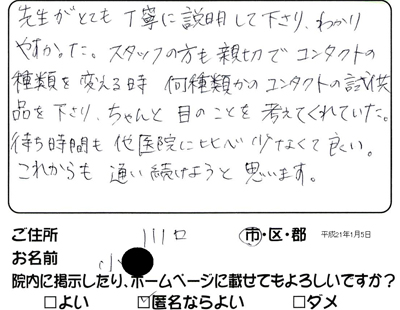 先生がとても丁寧に説明して下さり、わかり
やすかった。スタッフの方も親切でコンタクトの
種類を変える時 何種類かのコンタクトの試供
品を下さり、ちゃんと目のことを考えてくれていた。
待ち時間も他医院に比べ少なくて良い。
これからも通い続けようと思います。
ご住所 川口 市・区・郡 平成21年1月5日
お名前 小
院内に掲示したり、ホームページに載せてもよろしいですか?
□よい ☑匿名ならよい □ダメ